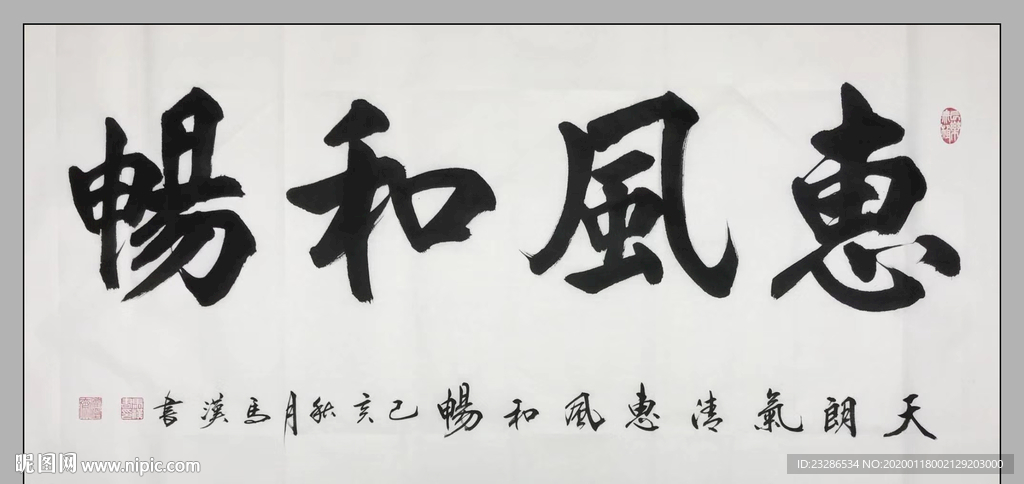 惠風和暢
天朗氣清惠風和暢己亥秋月馬漢書
昵图网 www.nipic.com
ID:23286534 NO:20200118002129203000